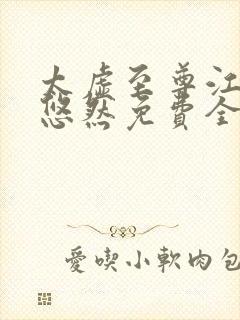 太虛至尊江
悠然免費全
愛喫小軟肉包